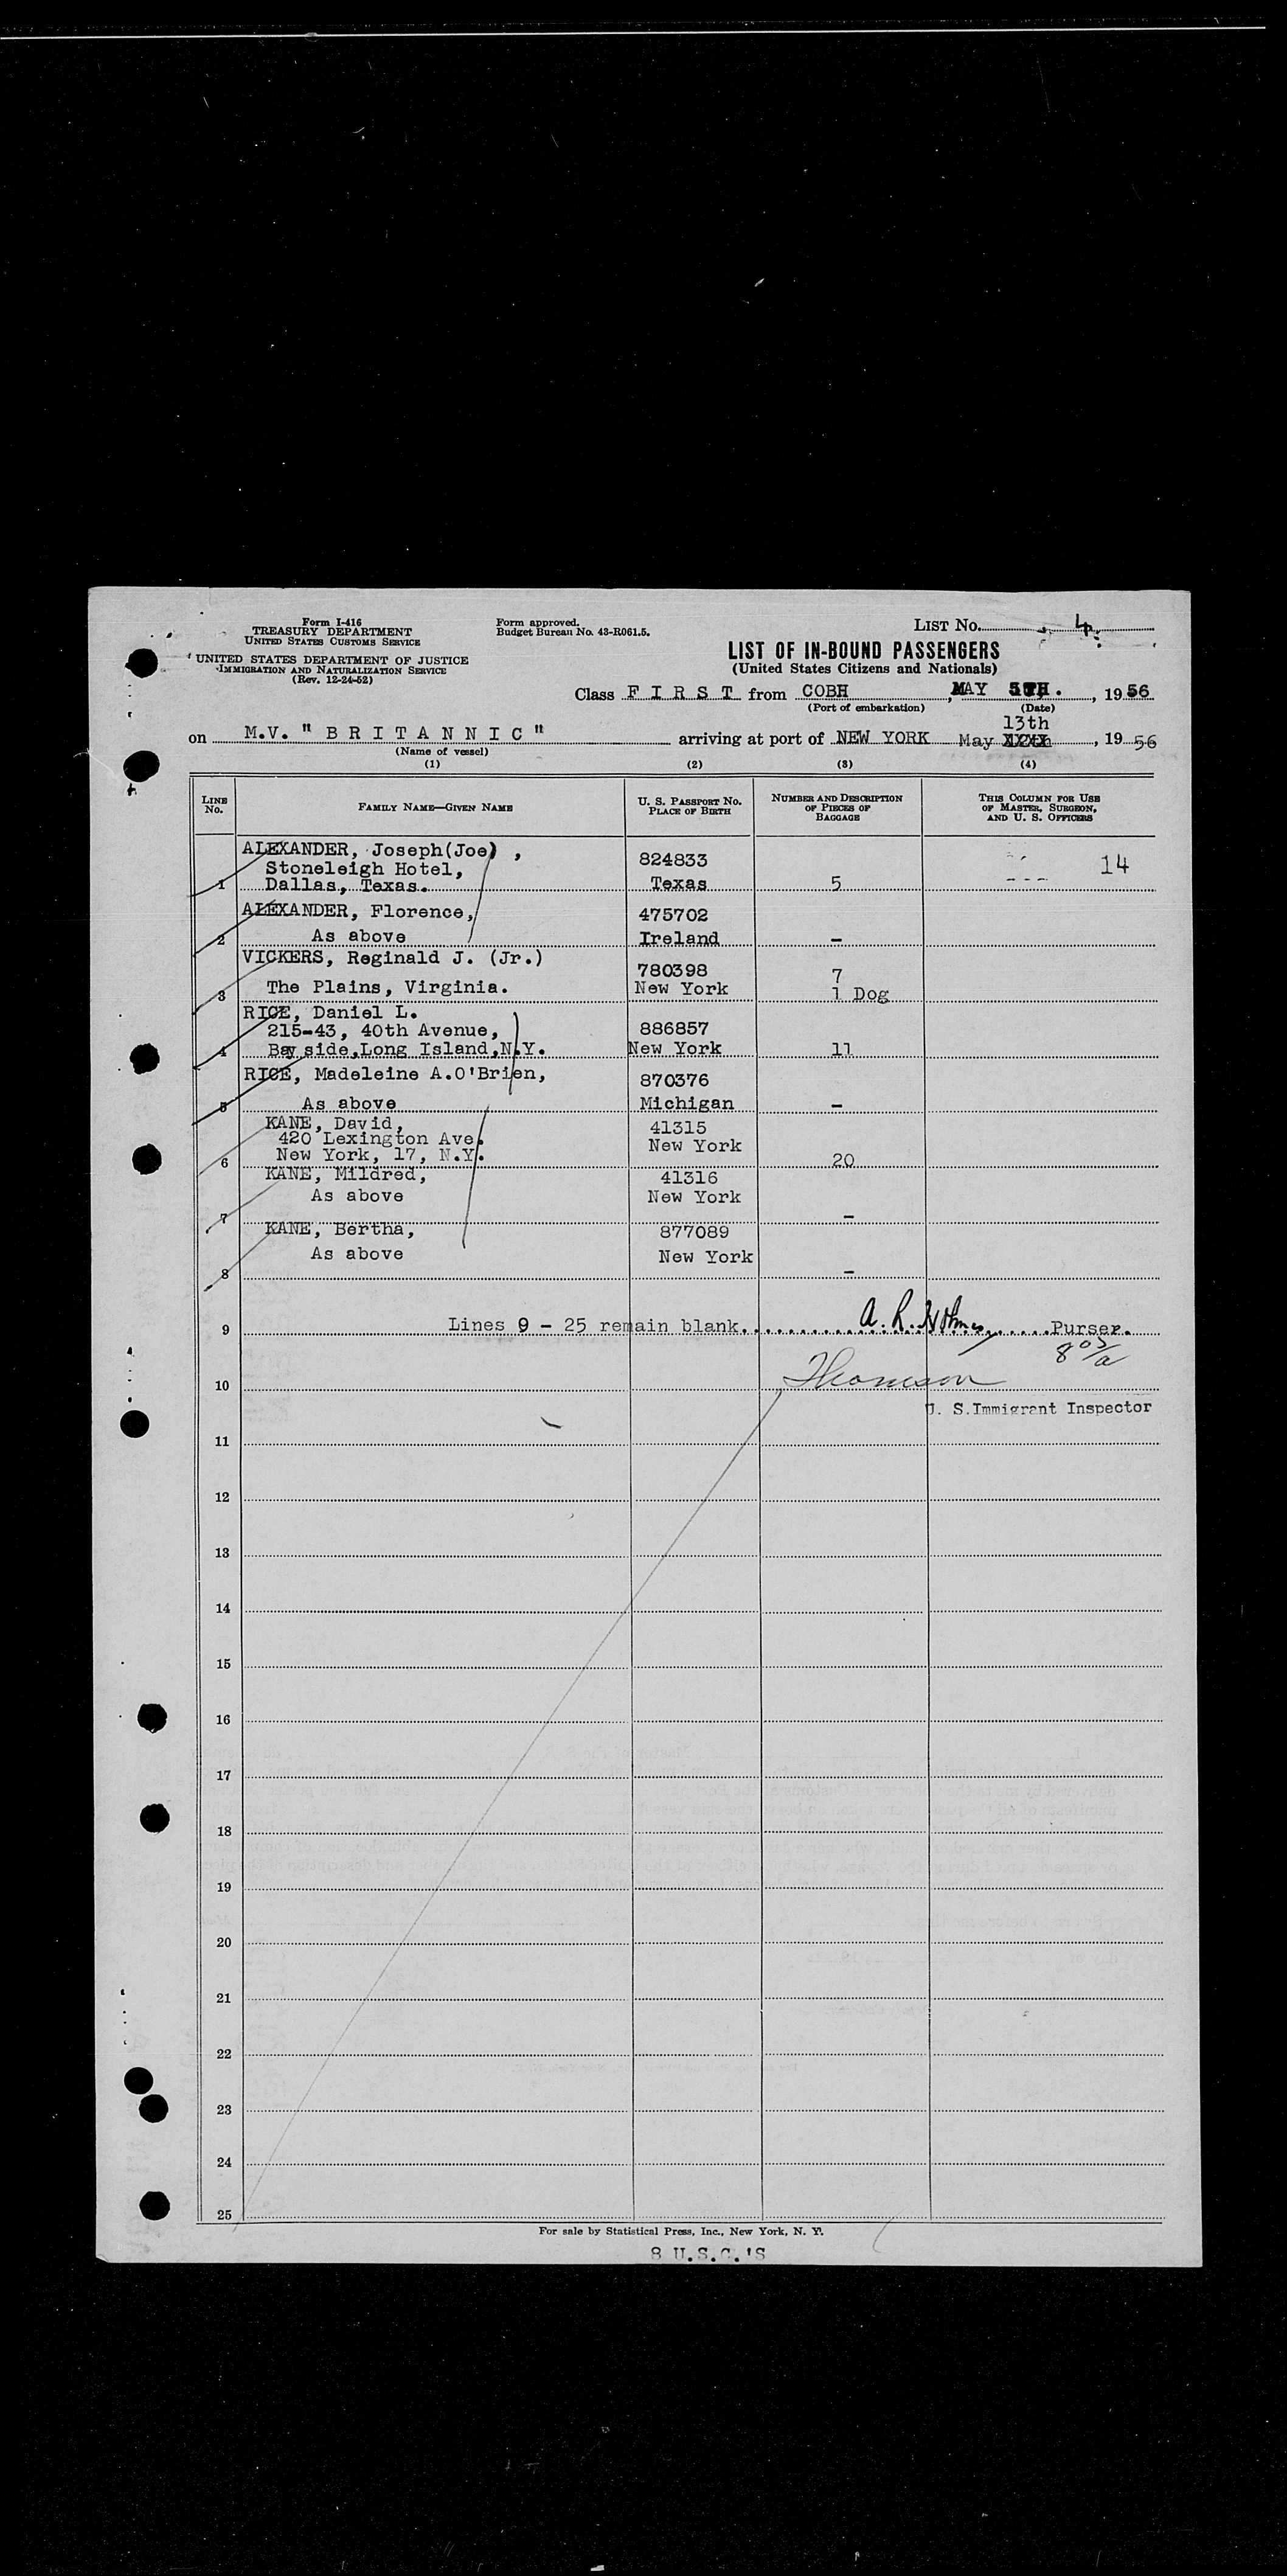 Form I-416
TREASURY DEPARTMENT
UNITED STATES CUSTOMS SERVICE
UNITED STATES DEPARTMENT OF JUSTICE
IMMIGRATION AND NATURALIZATION SERVICE
(Rev. 12-24-52)
Form approved.
Budget Bureau No. 43-R061.5.
LIST No. 4.
LIST OF IN-BOUND PASSENGERS
(United States Citizens and Nationals)
Class F I R S T from COBH , MAY 5TH. , 1956
(Port of embarkation) (Date)
13th
on M.V. " B R I T A N N I C " arriving at port of NEW YORK May , 19 56
(Name of vessel)
(1) (2) (3) (4)
LINE No. FAMILY NAME—GIVEN NAME U. S. PASSPORT No. PLACE OF BIRTH NUMBER AND DESCRIPTION OF PIECES OF BAGGAGE THIS COLUMN FOR USE OF MASTER, SURGEON, AND U. S. OFFICERS
ALEXANDER, Joseph(Joe) , 824833 14
Stoneleigh Hotel,
1 Dallas, Texas. Texas 5
ALEXANDER, Florence, 475702
2 As above Ireland –
VICKERS, Reginald J. (Jr.) 780398 7
3 The Plains, Virginia. New York 1 Dog
RICE, Daniel L.
215-43, 40th Avenue, 886857
4 Bay side,Long Island,N.Y. New York 11
RICE, Madeleine A.O'Brien, 870376
5 As above Michigan –
KANE, David, 41315
420 Lexington Ave. New York
6 New York, 17, N.Y. 20
KANE, Mildred, 41316
As above New York
7 –
KANE, Bertha, 877089
As above New York
8 –
9 Lines 9 - 25 remain blank. A. R. Holmes Purser.
8 05/a
10 Thomson
U. S.Immigrant Inspector
11
12
13
14
15
16
17
18
19
20
21
22
23
24
25
For sale by Statistical Press, Inc., New York, N. Y.
8 U.S.C.'S